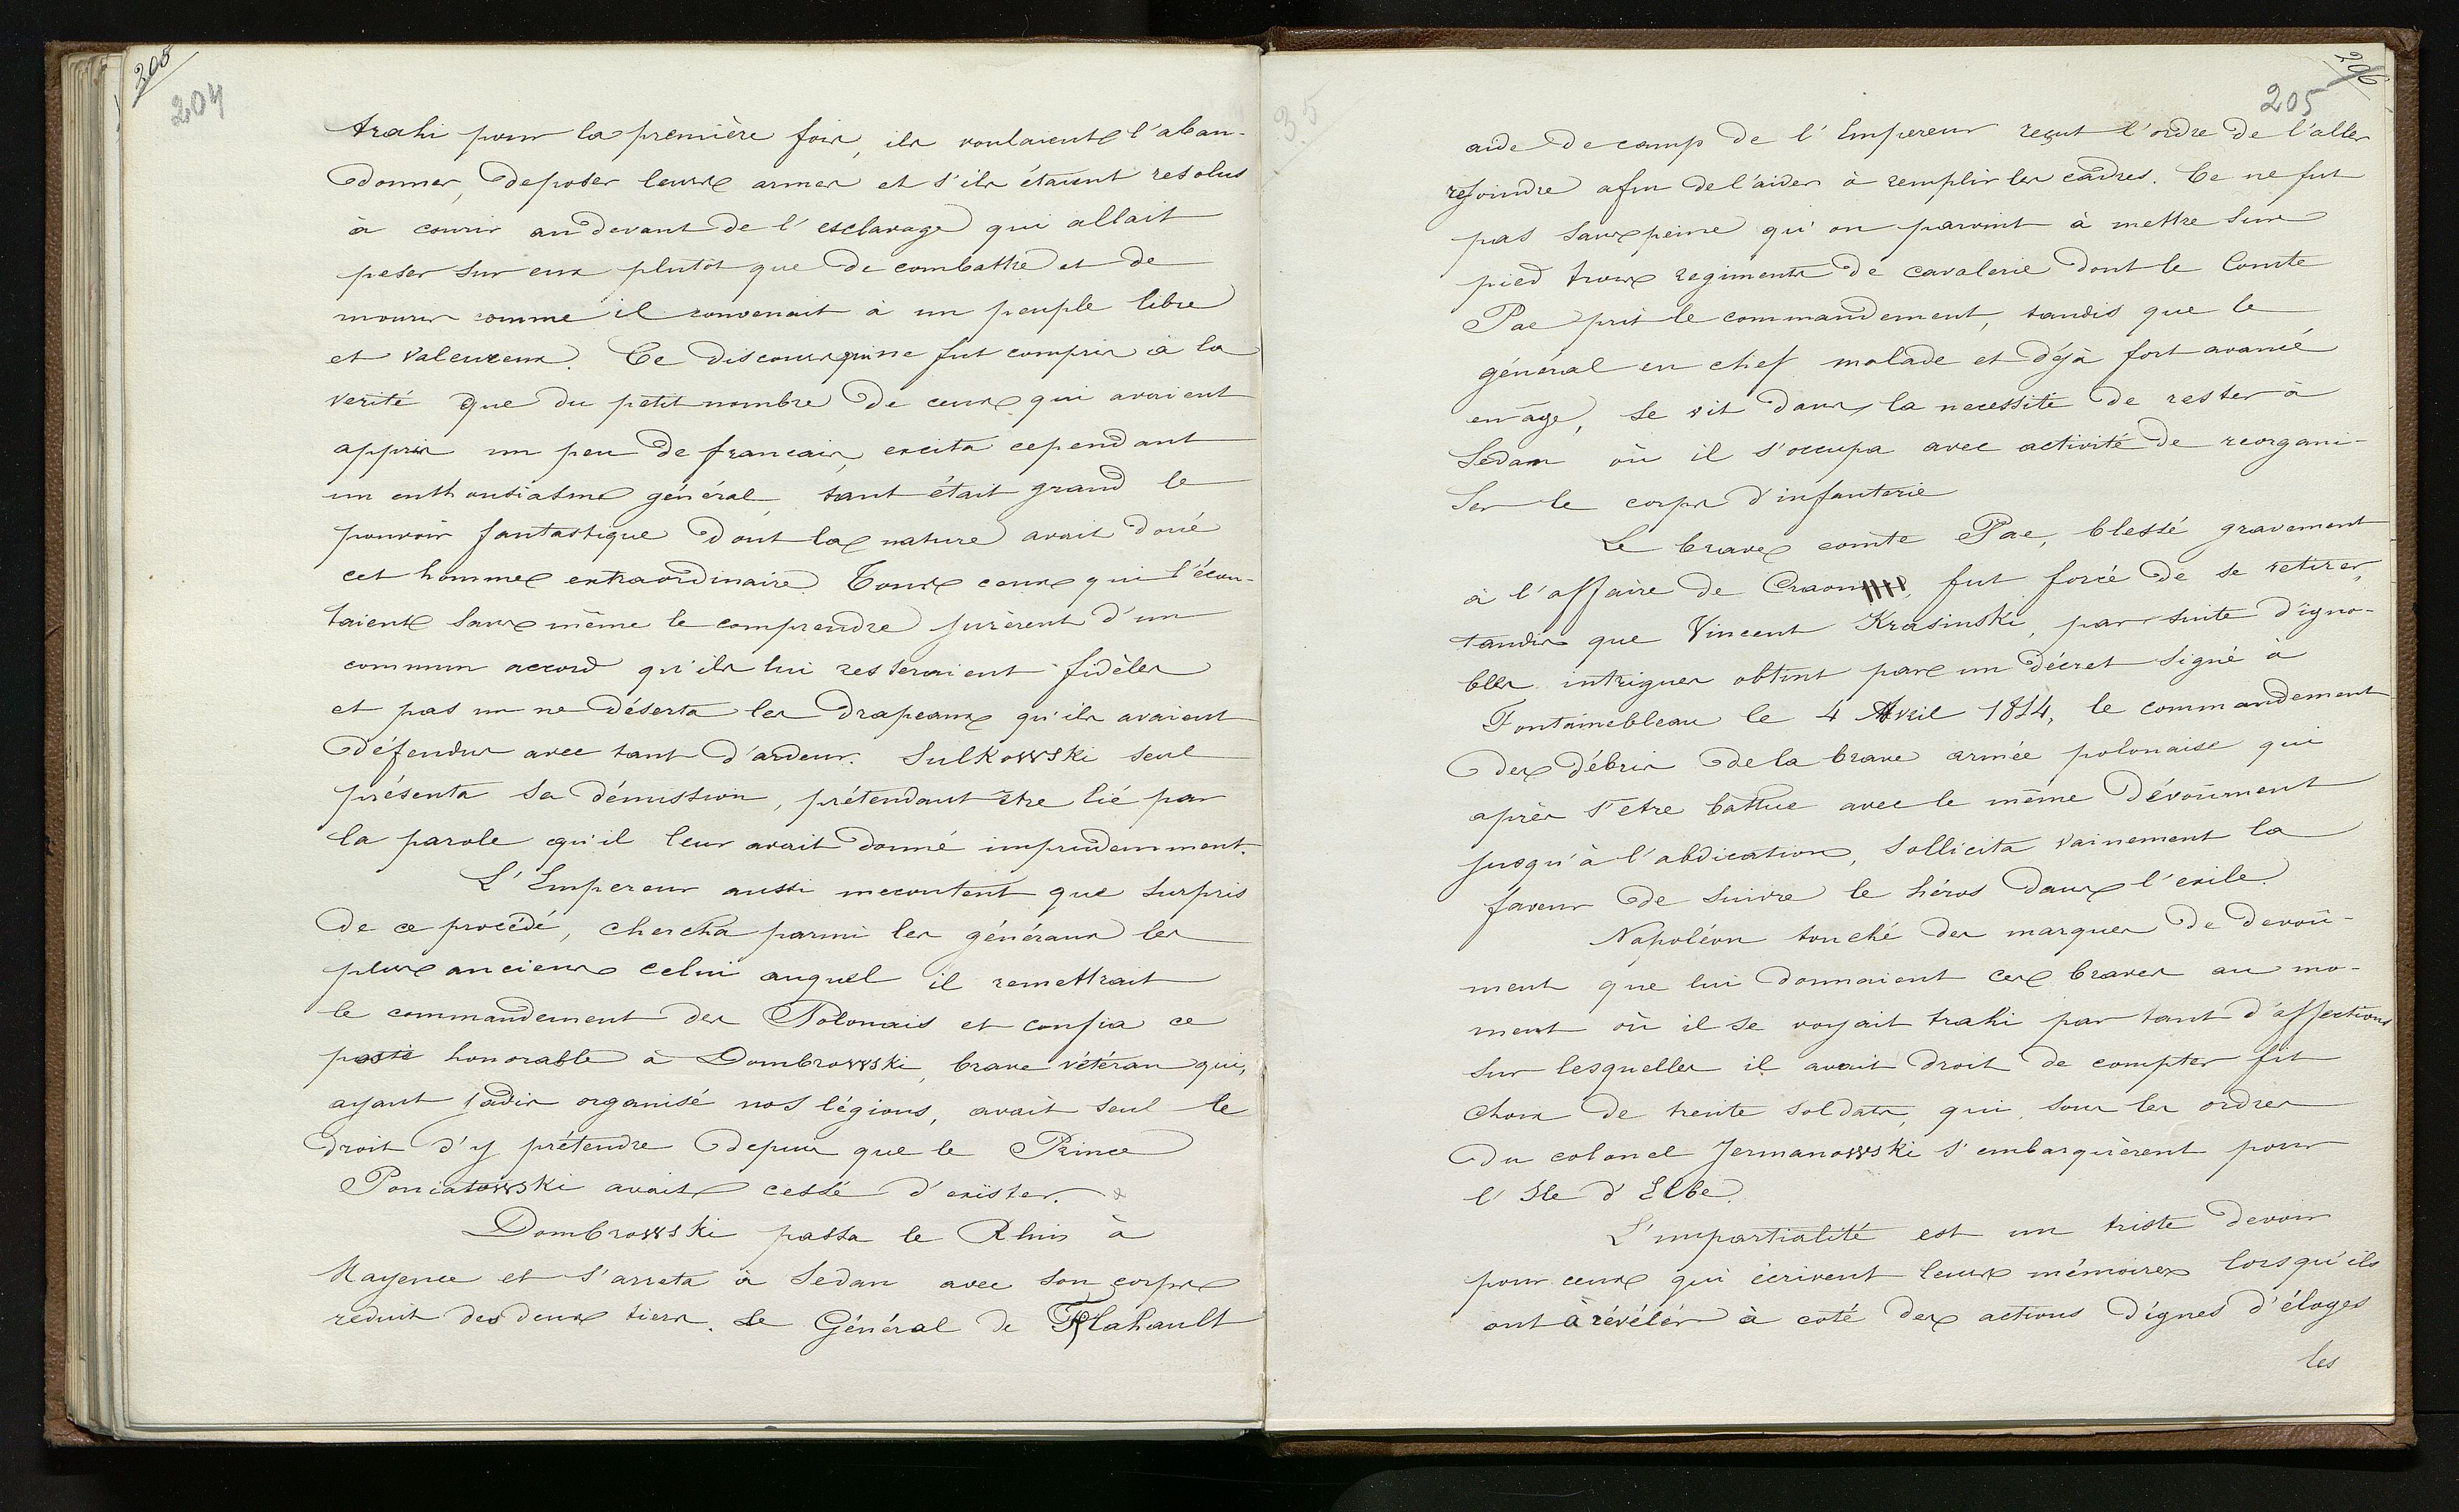 205
204
trahi pour la première fois, ils voulaient l'aban-
donner, deposer leurs armes et s'ils étaient resolus
à courir au devant de l'esclavage qui allait
peser sur eux plutôt que de combattre et de
mourir comme il convenait à un peuple libre
et valeureux. Ce discours qui ne fut compris à la
verité que du petit nombre de ceux qui avaient
appris un peu de francais, excita cependant
un enthousiasme général, tant était grand le
pouvoir fantastique dont la nature avait doué
cet homme extraordinaire. Tous ceux qui l'écou-
taient sans même le comprendre jurèrent d'un
commun accord qu'ils lui resteraient fidèles
et pas un ne déserta les drapeaux qu'ils avaient
défendus avec tant d'ardeur. Sulkowski seul
présenta sa démission, prétendant être lié par
la parole qu'il leur avait donné imprudemment.
L'Empereur aussi mecontent que surpris
de ce procédé, chercha parmi les généraux les
plus anciens celui auquel il remettrait
le commandement des Polonais et confia ce
poste honorable à Dombrowski, brave vétéran qui,
ayant jadis organisé nos légions, avait seul le
droit d'y prétendre depuis que le Prince
Poniatowski avait cessé d'exister.
Dombrowski passa le Rhin à
Mayence et s'arreta à Sedan avec son corps
reduit des deux tiers. Le Général de Flahault
206
205
35
aide de camp de l'Empereur reçut l'ordre de l'aller
rejoindre afin de l'aider à remplir les cadres. Ce ne fut
pas sans peine qu'on parvint à mettre sur
pied trois regiments de cavalerie dont le Comte
Pac prit le commandement, tandis que le
général en chef malade et déjà fort avancé
en âge, se vit dans la necessité de rester à
Sedan où il s'occupa avec activité de reorgani-
ser le corps d'infanterie
Le brave comte Pac, blessé gravement
à l'affaire de Craon, fut forcé de se retirer,
tandis que Vincent Krasinski, par suite d'igno-
bles intrigues obtint par un décret signé à
Fontainebleau le 4 Avril 1814, le commandement
des débris de la brave armée polonaise qui
après s'etre battue avec le même dévoûment
jusqu'à l'abdication, sollicita vainement la
faveur de suivre le héros dans l'exile.
Napoléon touché des marques de devoû-
ment que lui donnaient ces braves au mo-
ment où il se voyait trahi par tant d'affections
sur lesquelles il avait droit de compter fit
choix de trente soldats, qui sous les ordres
du colonel Jermanowski s'embarquèrent pour
l'Ile d'Elbe.
L'impartialité est un triste devoir
pour ceux qui écrivent leurs mémoires lorsqu'ils
ont à révéler à coté des actions dignes d'éloges
les